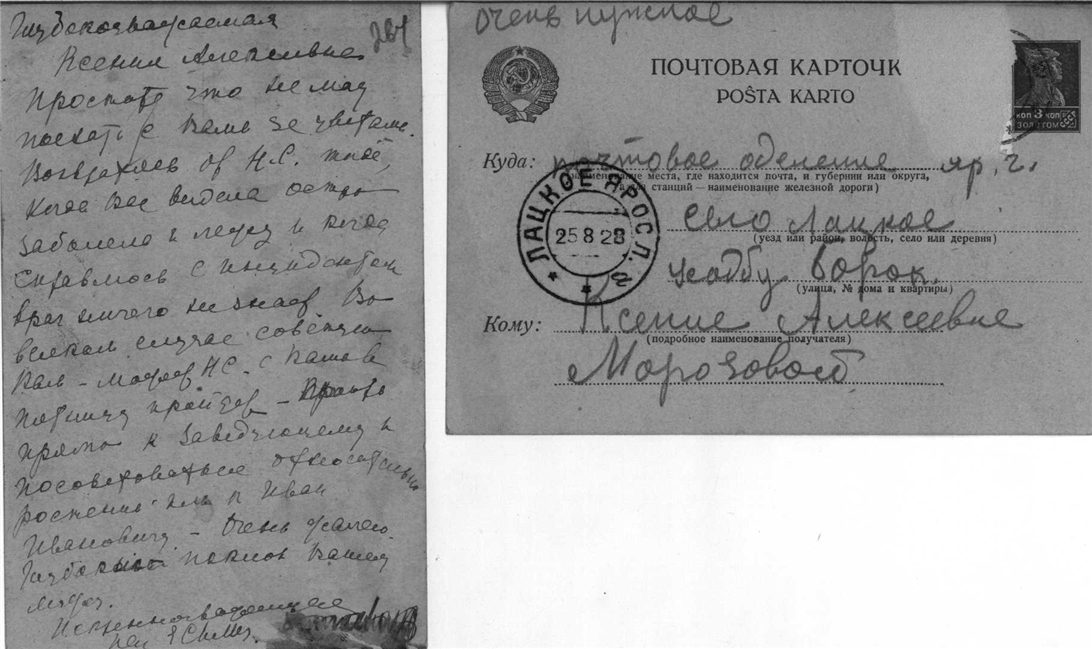 Глубокоуважаемая
264
Ксения Алексеевна
Простите что не могу
поехать с Вами за цветами.
Возвращаясь от Н.С. тогда,
когда Вас видела остро
заболела и лежу и когда
справлюсь с
врач ничего не знает Во
всяком случае советую
Вам – Н.С. с Вами в
пятницу пройдет –
прямо к Заведующему и
посоветоваться относительно
к Иван
Ивановичу – Очень жалею.
Глубокий поклон Вашему
мужу.
очень нужное
ПОЧТОВАЯ КАРТОЧК
POŜTA KARTO
КОП 3 КОП
ЗОЛОТОМ
СССР
Куда: почтовое оделение яр. г.
(наименование места, где находится почта, и губернии или округа,
а для станций — наименование железной дороги)
село Лацкое
(уезд или район, волость, село или деревня)
усадбу Борок.
(улица, № дома и квартиры)
Кому: Ксение Алексеевне
(подробное наименование получателя)
Морозовой
ЛАЦКОЕ ЯРОСЛ.
25 8 28